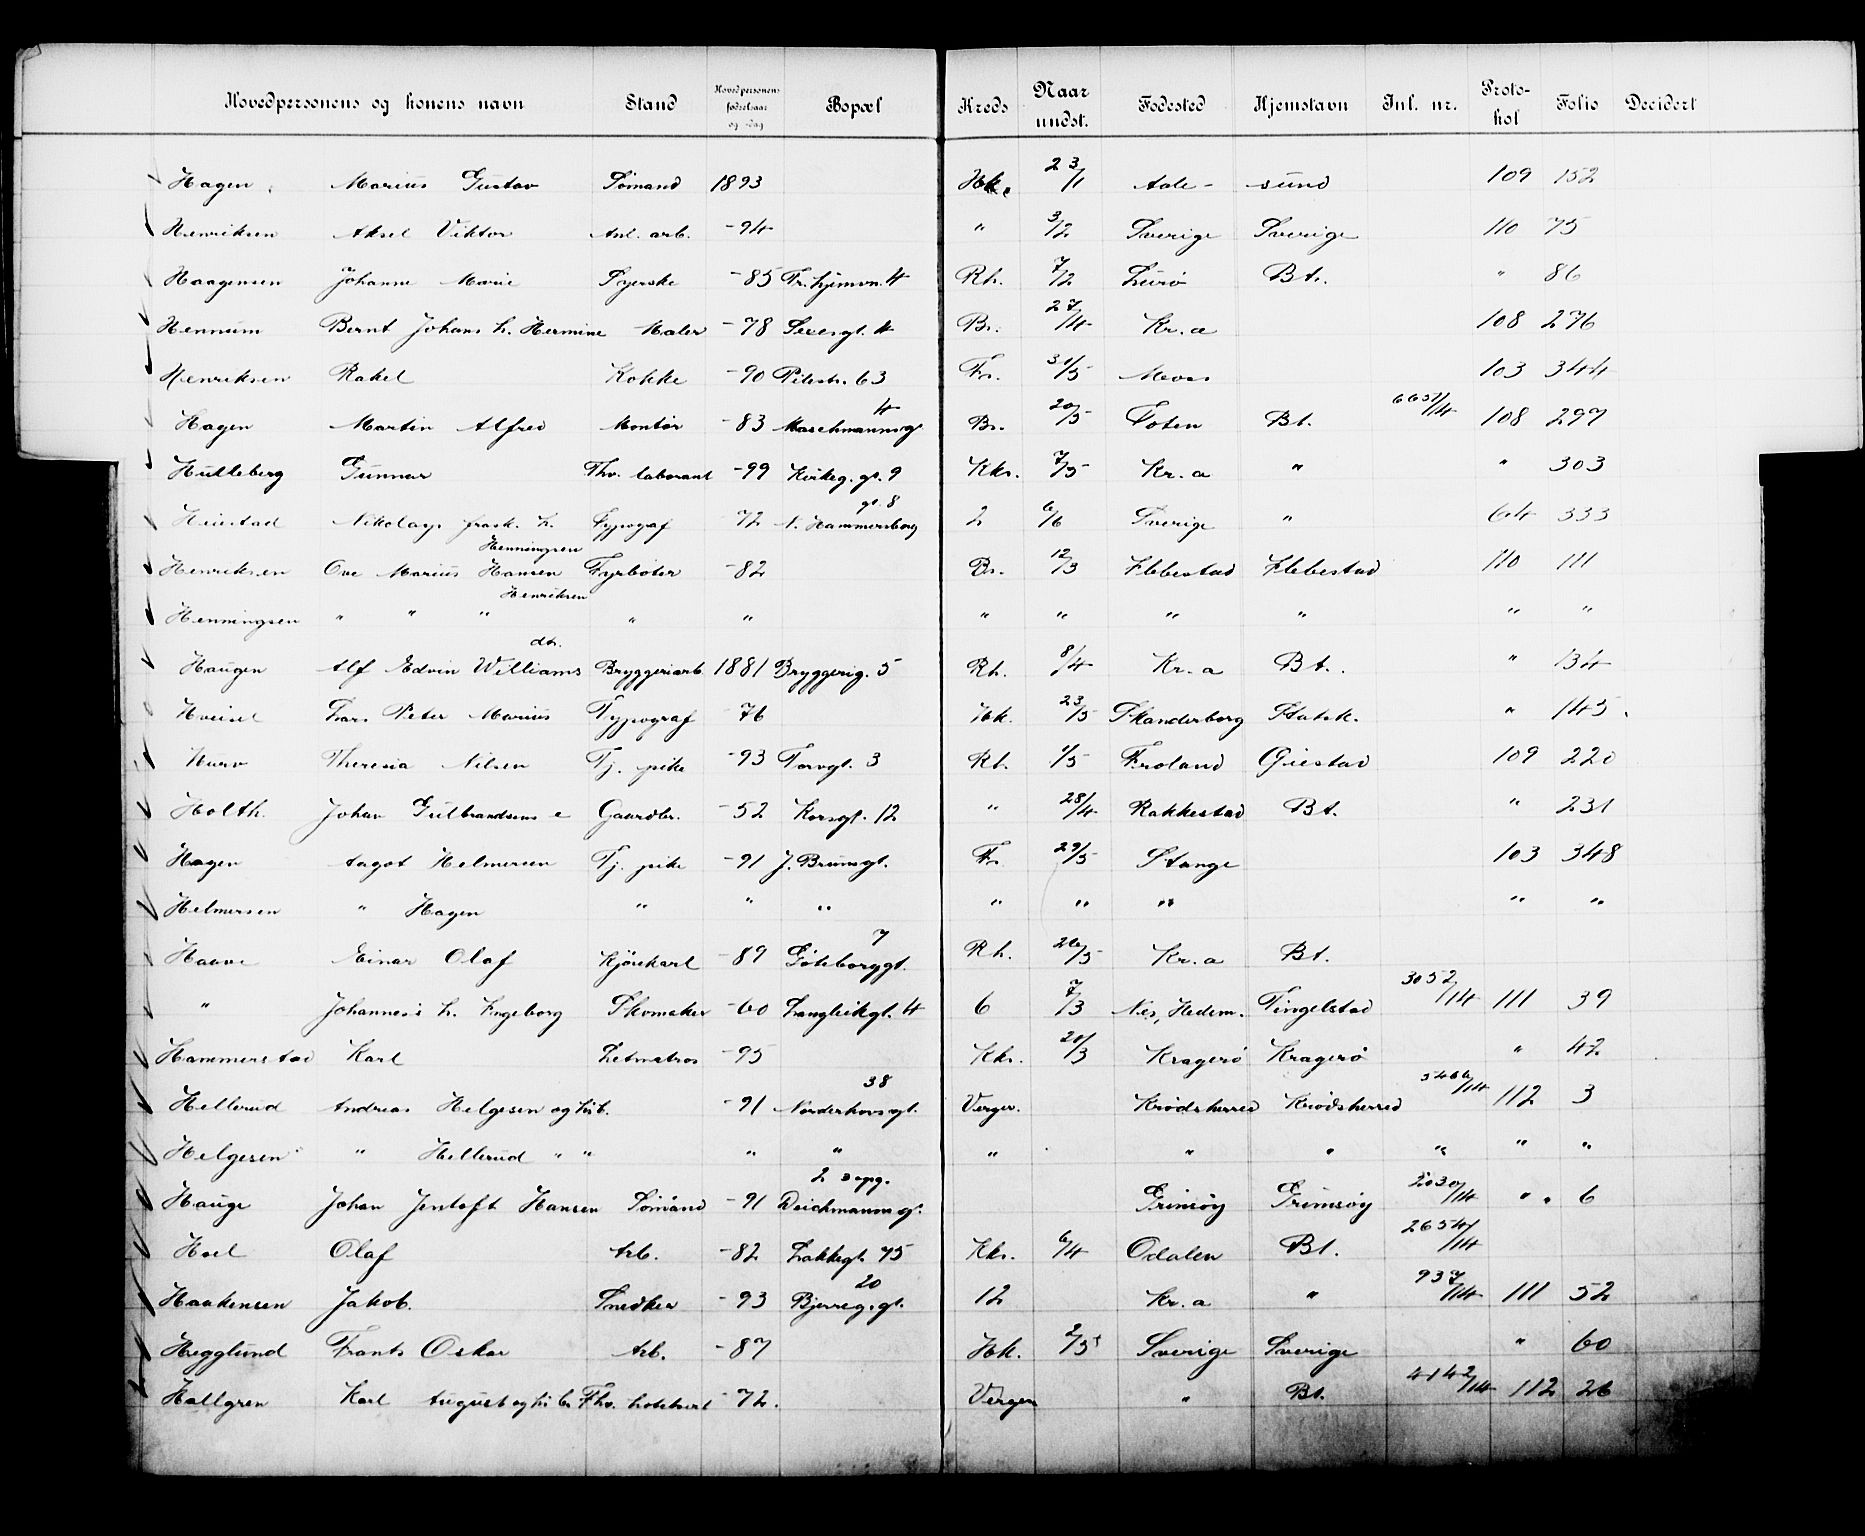 Hovedpersonens og konens navn Stand Hovedpersonens fødselsaar og -dag Bopæl Kreds Naar undst. Fødested Hjemstavn Inl. nr. Protokol Folio Decidert
Hagen Marius Gustav Sømand 1893 Hk. 23/1 Aale- sund 109 152
Henriksen Aksel Viktor Anl. arb. -94 " 3/2 Sverige Sverige 110 75
Haagensen Johanne Marie Syerske -85 Fr. hjemvn. 4 Rh. 7/2 Lurø Bt. " 86
Hennum Bernt Johans h. Hermine Maler -78 Sexesgt. 4 Br. 27/4 Kr.a 108 276
Henriksen Rakel Kokke -90 Pilestr. 63 Fr. 31/5 Moss 103 344
Hagen Martin Alfred Montør -83 Maschmannsg 4 Br. 20/5 Toten Bt. 6657/14 108 297
Hulleberg Gunnar Fhv. laborant -99 Kirkeg. gt. 9 Kkr. 7/5 Kr.a " " 303
Heiestad Nikolays frask. h. Typograf -72 N. Hammersborg gt. 8 2 6/6 Sverige " 64 333
Henriksen Ove Marius Hansen Henningsen Fyrbøter -82 Br. 12/3 Klebestad Klebestad 110 111
Henningsen " " " Henriksen " " " " " " " "
Haugen Alf Edvin Williams dtr. Bryggeriarb. 1881 Bryggerig. 5 Rh. 8/4 Kr.a Bt. " 134
Hveisel Lars Peter Marius Typograf -76 Hk. 23/5 Skanderborg Statsk. " 145
Hurv Theresia Nilsen Tj. pike -93 Torvgt. 3 Rh. 1/5 Froland Giestad 109 220
Holth. Johan Gulbrandsens e Gaardbr. -52 Korsgt. 12 " 28/4 Rakkestad Bt. " 231
Hagen Aagot Helmersen Tj. pike -91 J. Brunsgt. Fr. 29/5 Stange 103 348
Helmersen " Hagen " " " " " " " "
Haave Einar Olaf Kjørekarl -89 Gøteborggt. 7 Rh. 26/5 Kr.a Bt.
" Johannes's h. Ingeborg Skomaker -60 Langleikgt. 4 6 7/3 Nes, Hedem. Tingelstad 3052/14 111 39
Hammerstad Karl Letmatros -95 Kkr. 20/3 Kragerø Kragerø " 42
Hellerud Andreas Helgesen og hb. -91 Norderhovsgt. 38 Verger. Krødsherred Krødsherred 5466/14 112 3
Helgesen " Hellerud " " " " " " " " " "
Hauge Johan Jentoft Hansen Sømand -91 Deichmannsgt. 2 3 opg. Grimsøy Grimsøy 2030/14 " " 6
Hoel Olaf Arb. -82 Lakkegt. 75 Kkr. 6/4 Odalen Bt. 2654/14
Haakensen Jakob. Snedker -93 Bjerreg.gt. 20 12 Kr.a " 937/14 111 52
Hegglund Frants Oskar Arb. -87 Hk. 2/5 Sverige Sverige " 60
Hallgren Karl August og hb Fhv. hotelvert -72. Verger " Bt. 4142/14 112 26